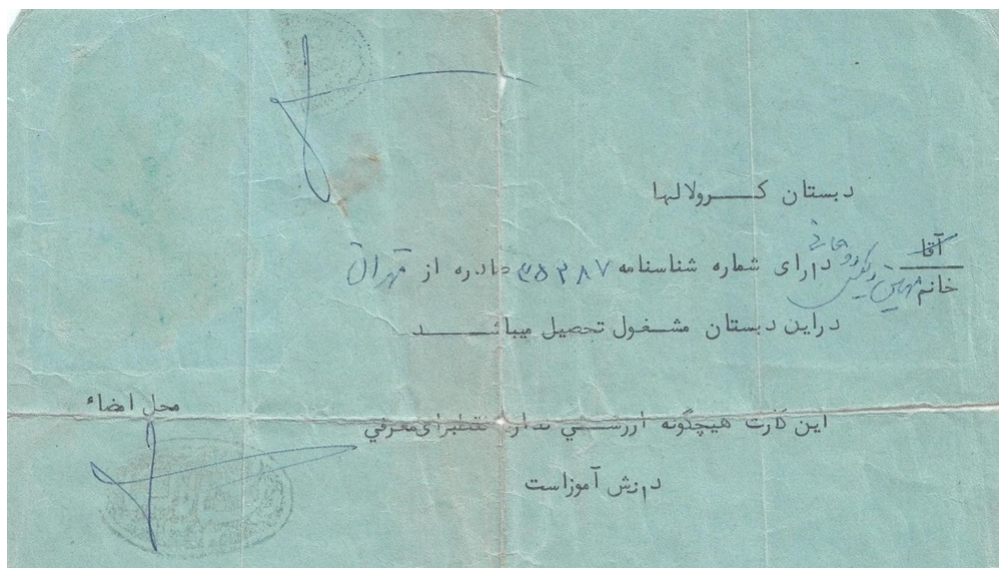 دبستان کرولالها
آقا
خانم دارای شماره شناسنامه صادره از تهران
دراین دبستان مشغول تحصیل میباشد
محل امضاء
این کارت هیچگونه ارزشي ندارد فقطبرای معرفي
دانش آموزاست